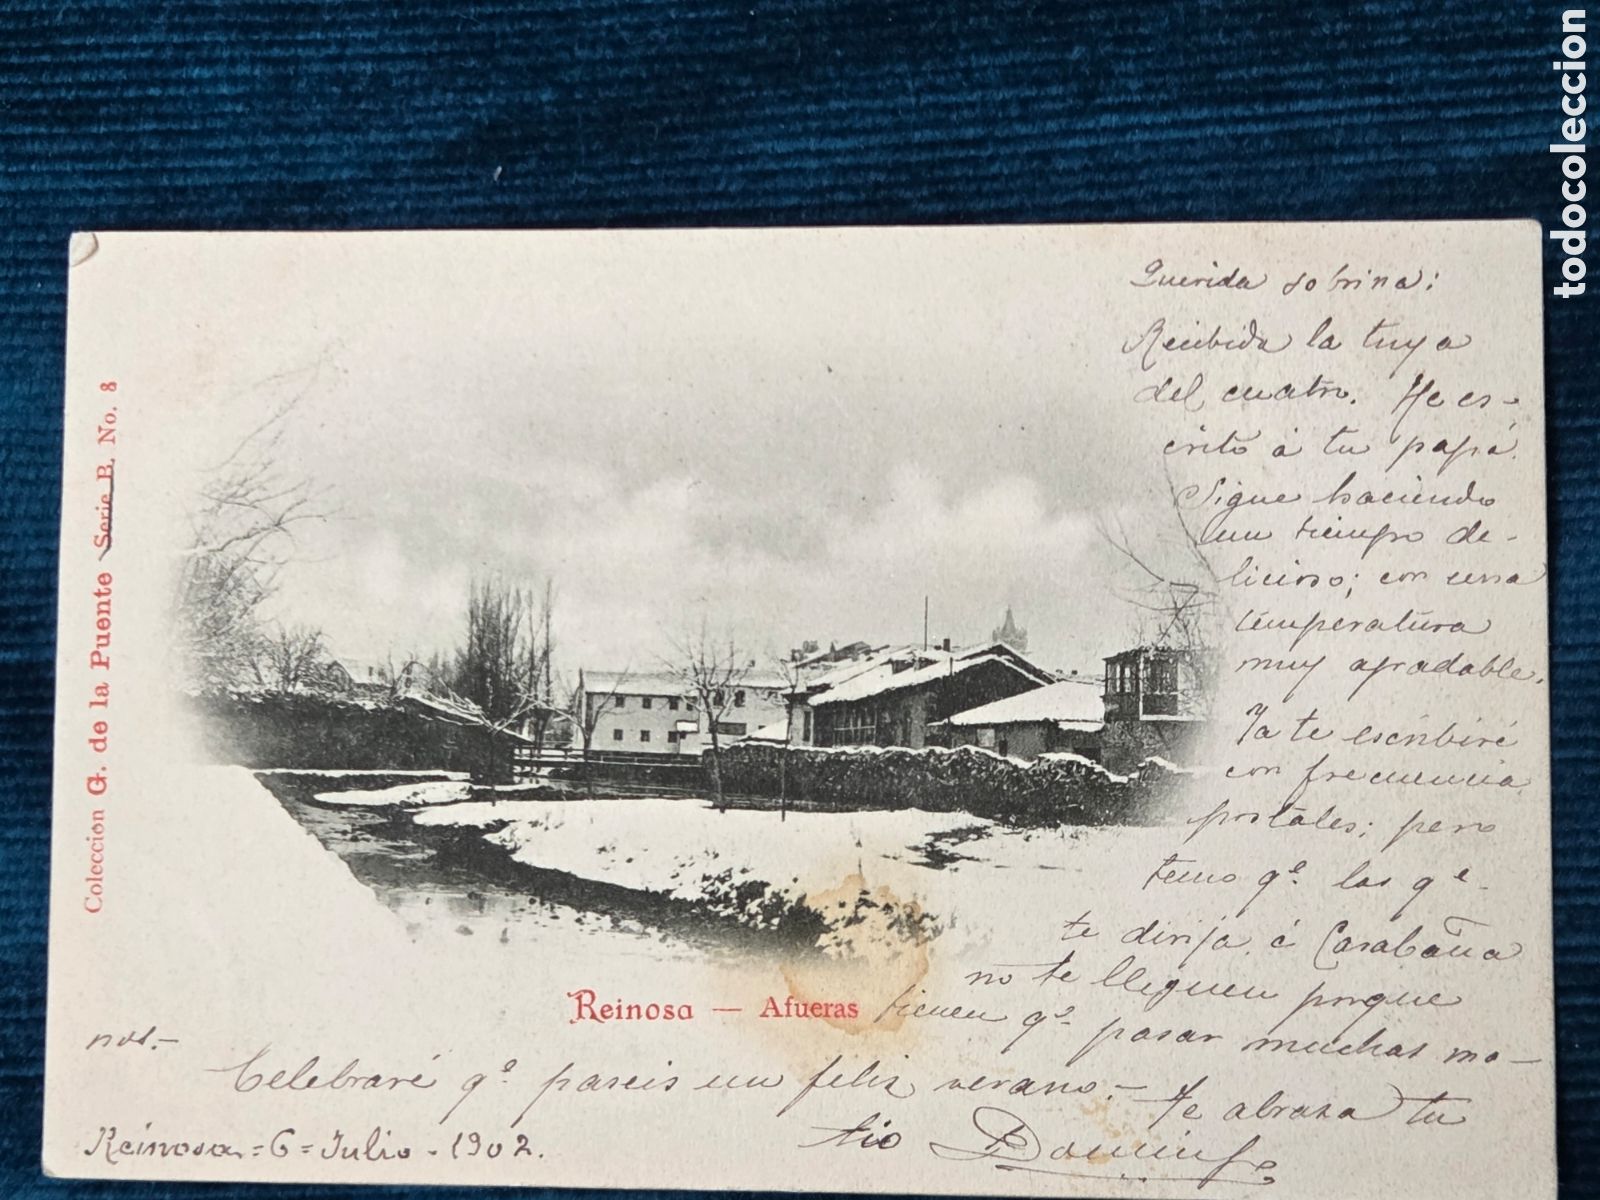 todocoleccion
Colección G. de la Puente Serie B. No. 8
Querida sobrina:
Recibida la tuya
del cuatro. He es-
crito á tu papá.
Sigue haciendo
un tiempo de-
licioso; con una
temperatura
muy agradable.
Ya te escribiré
con frecuencia
postales; pero
temo qe. las qe-
te dirija á Carabaña
no te lleguen porque
tienen qe- pasar muchas ma-
nos.-
Reinosa — Afueras
Celebraré qe paseis un feliz verano.- Te abraza tu
tio Domingo
Reinosa = 6 = Julio - 1902.